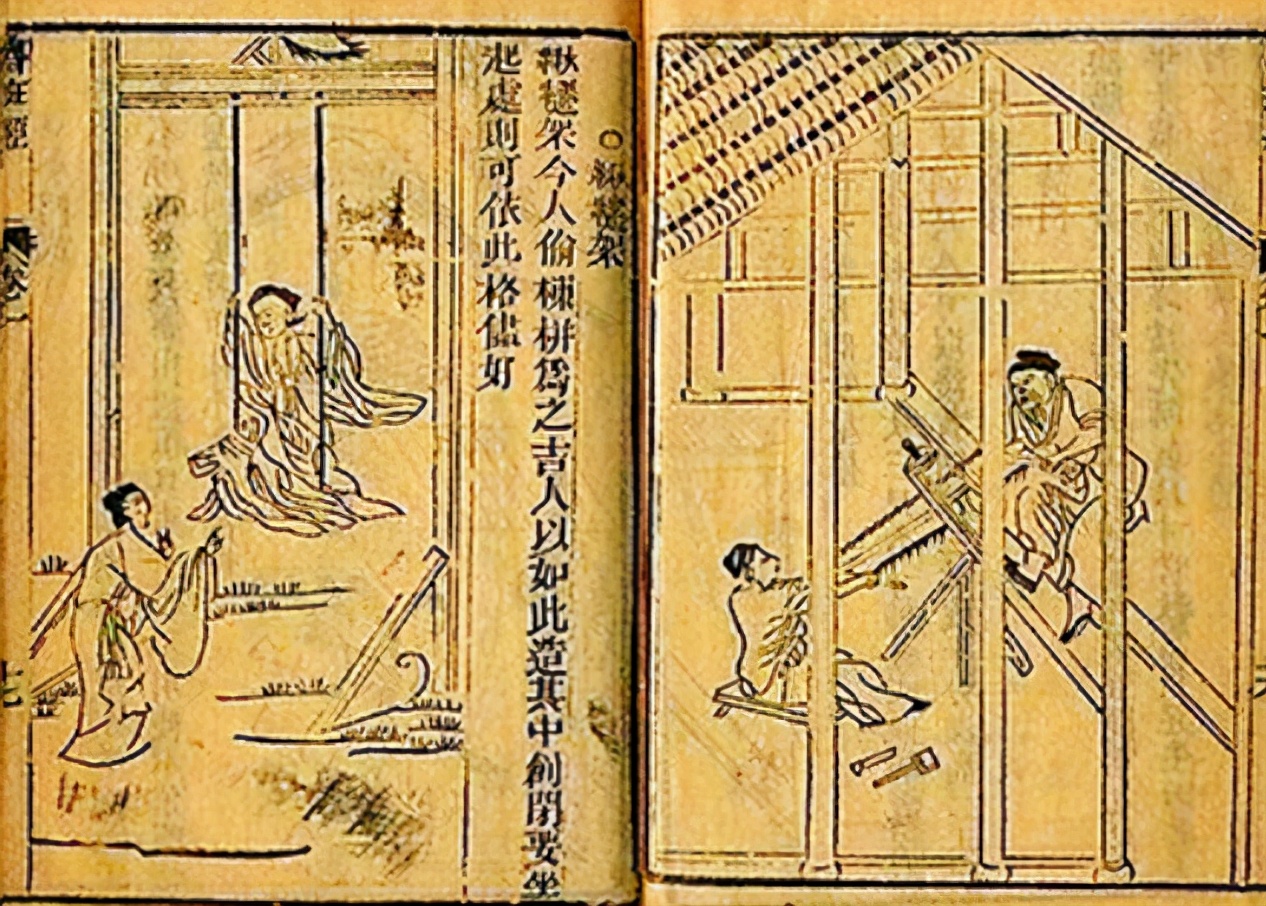 ○鞦韆架
鞦韆架今人偷棟栟爲之吉人以如此造其中創閒要坐
起處則可依此格儘好